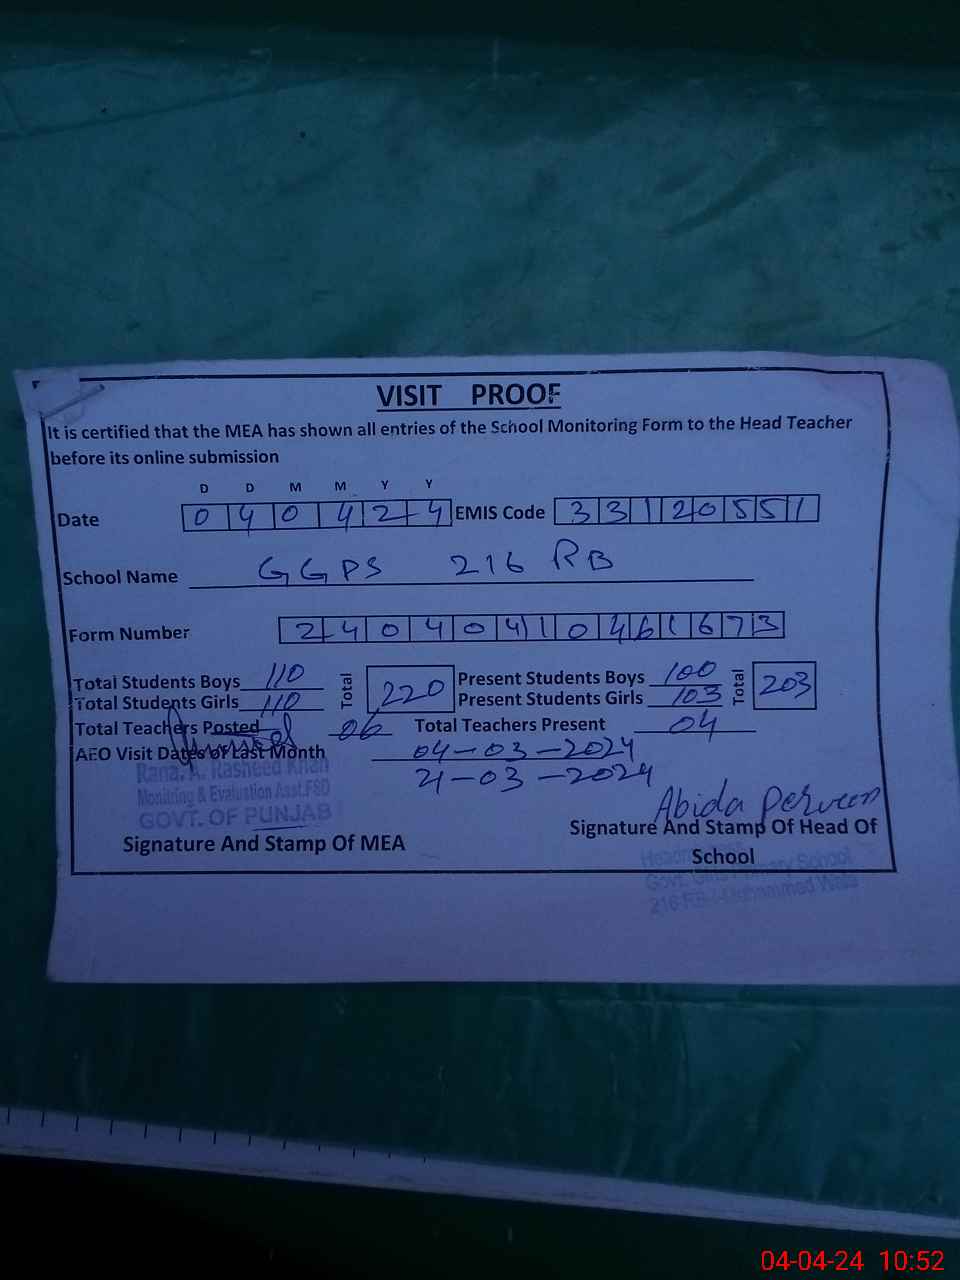 VISIT PROOF
It is certified that the MEA has shown all entries of the School Monitoring Form to the Head Teacher
before its online submission
D D M M Y Y
Date 0 4 0 4 2 4 EMIS Code 3 3 1 2 0 5 5 1
School Name GGPS 216 RB
Form Number 2 4 0 4 0 4 1 0 4 6 1 6 7 3
Total Students Boys 110 Total 220 Present Students Boys 100 Total 203
Total Students Girls 110 Present Students Girls 103
Total Teachers Posted 06 Total Teachers Present 04
AEO Visit Dates of Last Month 04-03-2024
21-03-2024
Rana. A. Rasheed Khan
Monitring & Evaluation Asst.FSD
GOVT. OF PUNJAB
Abida Perveen
Signature And Stamp Of MEA
Signature And Stamp Of Head Of
School
Govt. Girls Primary School
216 RB
04-04-24 10:52